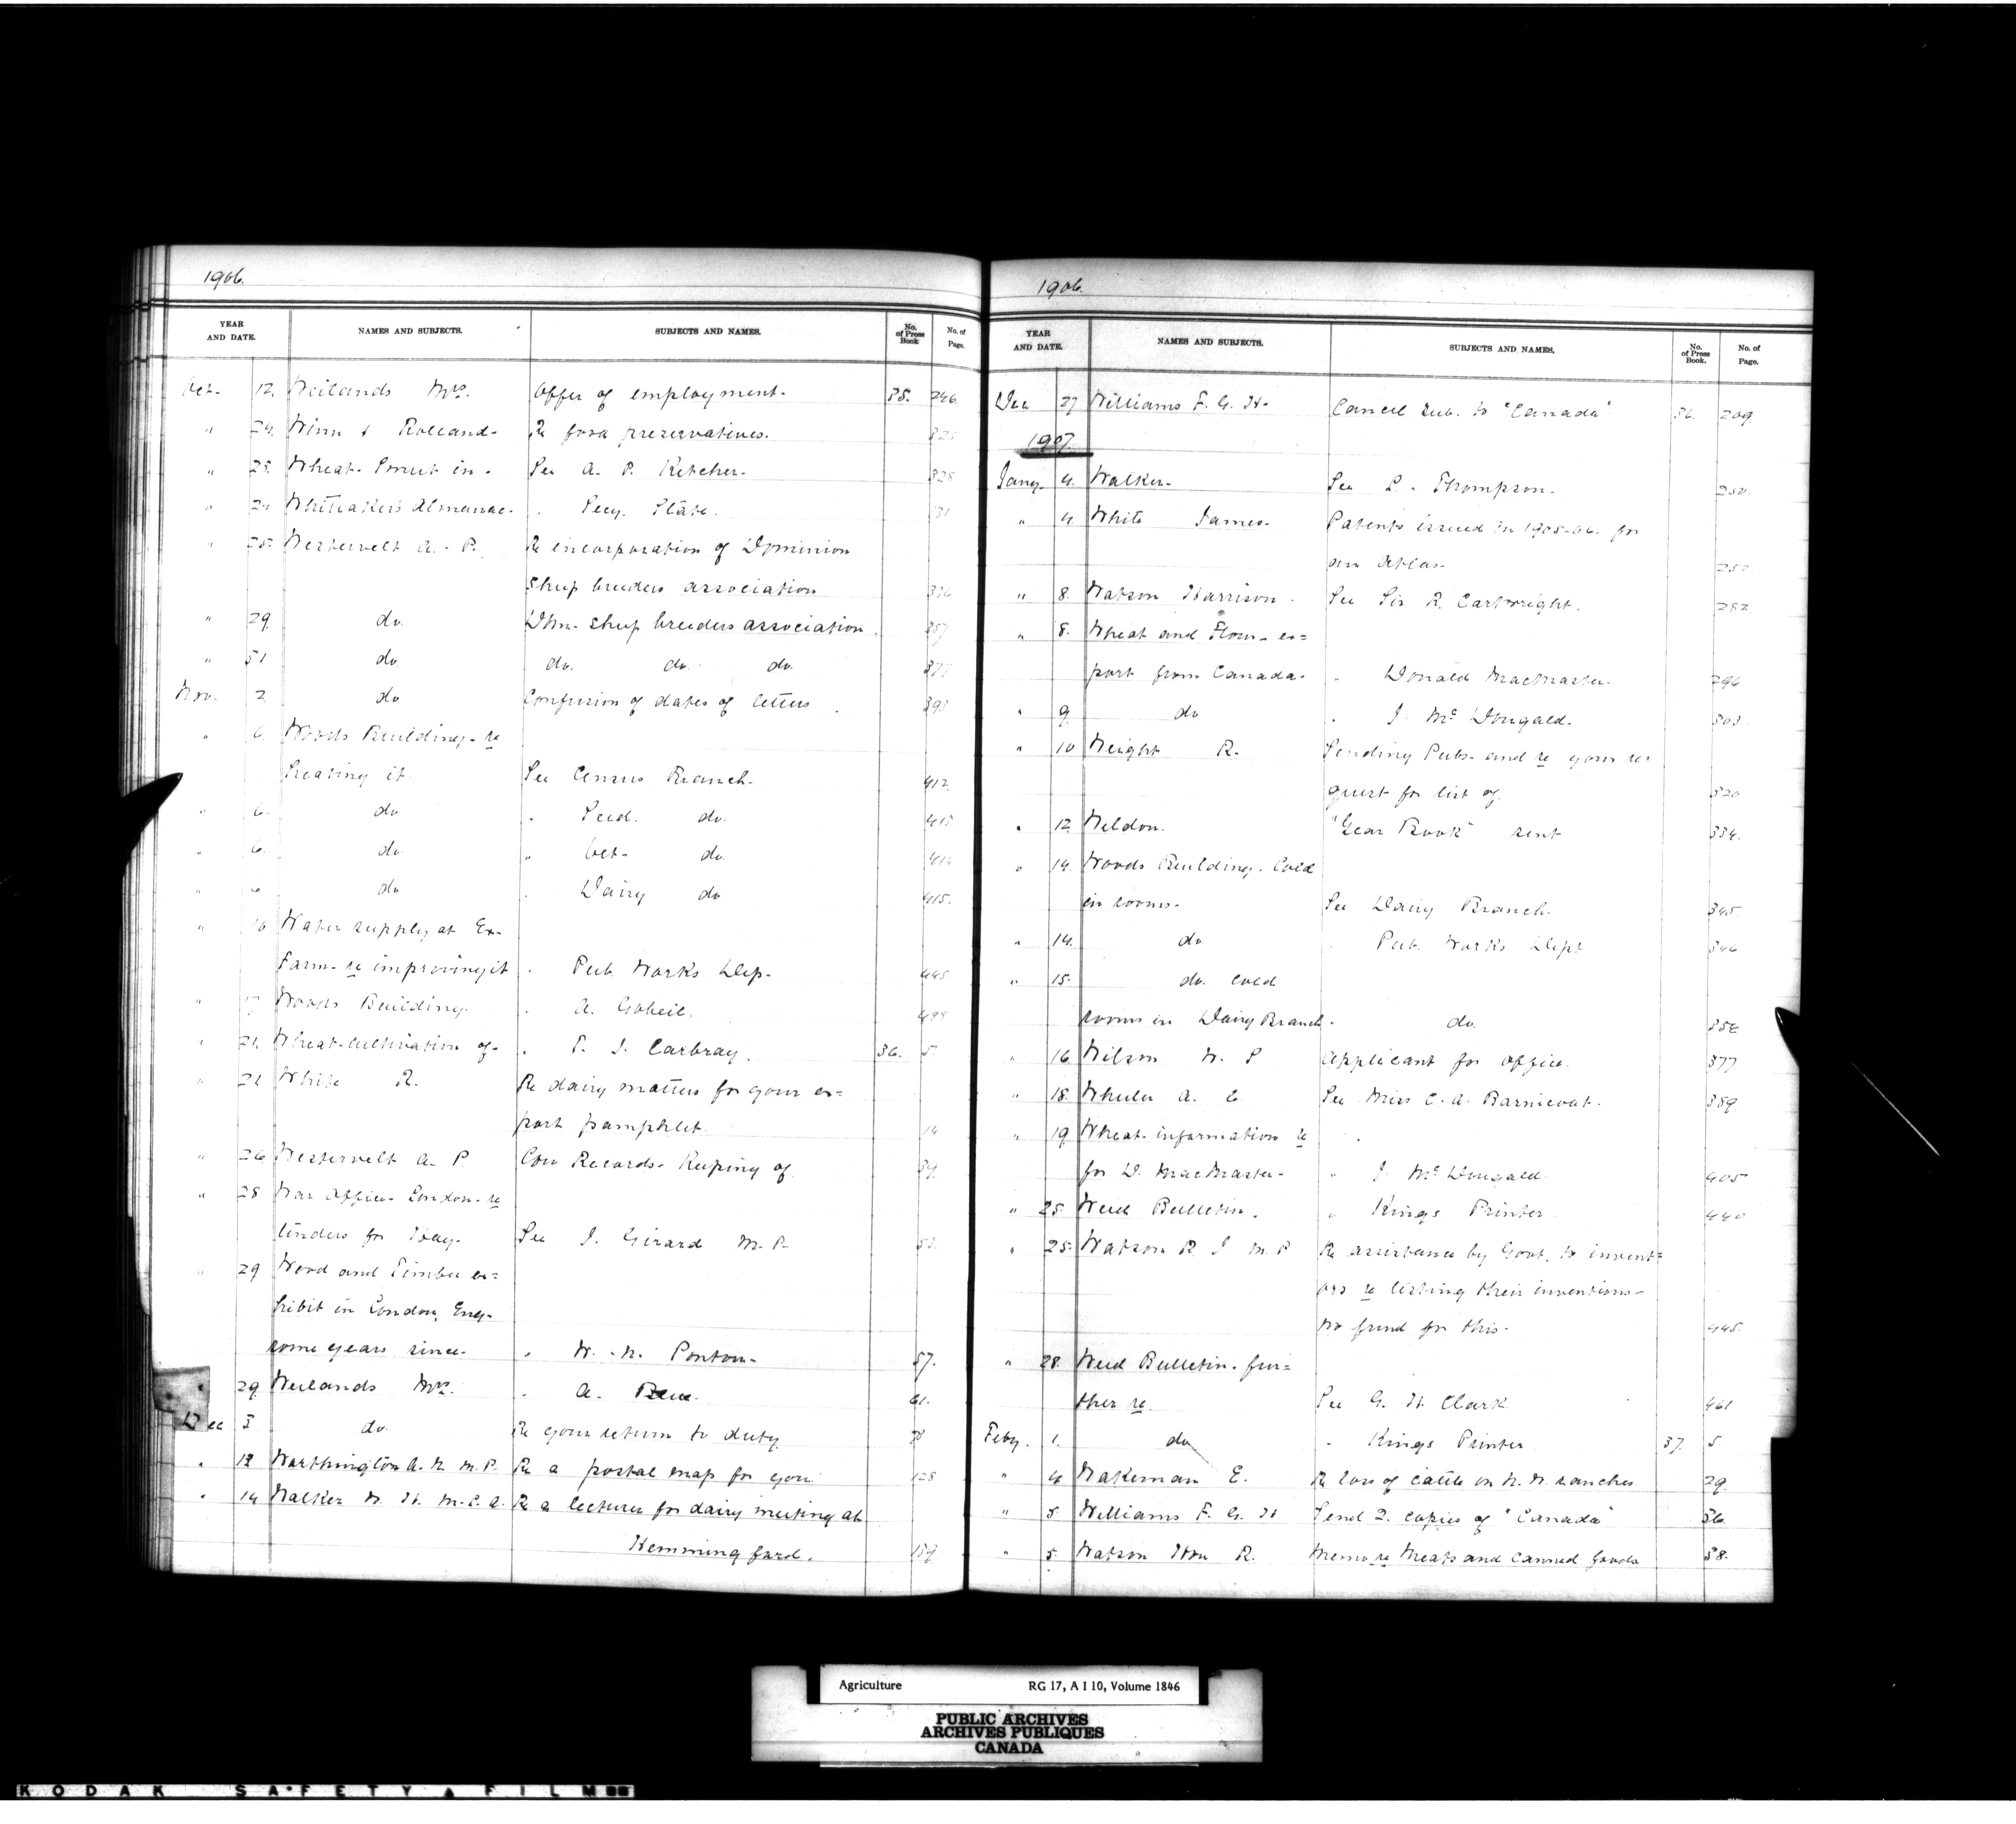 1906.
YEAR AND DATE. NAMES AND SUBJECTS. SUBJECTS AND NAMES. No. of Press Book No. of Page.
Oct. 12. Weilands Mrs. Offer of employment. 35. 246.
" 24. Winn & Rolland. Re food preservatives. 325
" 25. Wheat. Smut in. See A. P. Ketchen. 328
" Whitaker's Almanac. " Secy. State. 331
" 25. Westervelt A. P. Re incorporation of Dominion
Sheep breeders association 336
" 29. do. Dhn. Sheep breeders association. 357
" 31 do. do. do. do. 377
Nov. 2 do Confusion of dates of letters. 393
" 6. Woods Building. re
heating it See Census Branch. 412.
" 6. do " Seed. do. 413.
" 6. do. " Oct. do. 414
" 6 do " Dairy do 415.
" 16 Water supply at Ex.
Farm. re improving it " Pub Works Dep. 445
" 17 Woods Building. " A. Gobeil. 488
" 21. Wheat. cultivation of. " T. J. Carbray. 36. 5.
" 21 White R. Re dairy matters for your ex=
port pamphlet. 14
" 26 Westervelt A. P. Cow Records. Keeping of 39.
" 28 War Office. London. re
tenders for Hay. See J. Girard M. P. 53.
" 29 Wood and Timber ex=
hibit in London, Eng.
some years since. " W. N. Ponton. 57.
29. Weilands Mrs. " A. Blue. 61.
Dec 3 do. Re your return to duty
" 12 Worthington A. N. M. P. Re a postal map for you 128
" 14 Walker W. H. M. L. A. Re a lecturer for dairy meeting at
Hemmingford. 159
1906.
YEAR AND DATE. NAMES AND SUBJECTS. SUBJECTS AND NAMES. No. of Press Book. No. of Page.
Dec 27 Williams F. G. H. Cancel sub. to "Canada" 36. 209.
1907.
Jany. 4. Walker. See L. Thompson. 250.
" 4 White James. Patents issued in 1905-06. for
an Atlas. 252.
" 8. Watson Harrison. See Sir R. Cartwright. 282.
" 8. Wheat and Flour. ex=
port from Canada. " Donald MacMaster. 296
" 9. do " J. McDougald. 303
" 10 Weight R. Sending Pubs. and re your re=
quest for list of. 320
" 12. Weldon. "Year Book" sent 334.
" 14. Woods Building. Cold
in rooms. See Dairy Branch. 345.
" 14. do " Pub. Works Dept 346
" 15. do. cold
rooms in Dairy Branch. do. 352
" 16 Wilson W. P Applicant for office. 377
" 18. Wheeler A. C See Miss C. A. Barnicoat. 389.
" 19 Wheat. information re
for D. MacMaster. " J. McDougald. 405
" 25. Weed Bulletin. " Kings Printer 440
" 25. Watson R. J M. P Re assistance by Govt. to invent=
ors re listing their inventions.
no fund for this. 445.
" 28. Weed Bulletin. fur=
ther re. See G. H. Clark 461
Feby. 1. do " Kings Printer 37. 5
" 4 Wakeman E. Re loss of cattle on N. W. ranches 29.
" 5 Williams F. G. H Send 2. copies of "Canada" 36
" 5. Watson Wm R. Memo re Meats and canned goods 38.
Agriculture RG 17, A I 10, Volume 1846
PUBLIC ARCHIVES
ARCHIVES PUBLIQUES
CANADA
KODAK SAFETY FILM